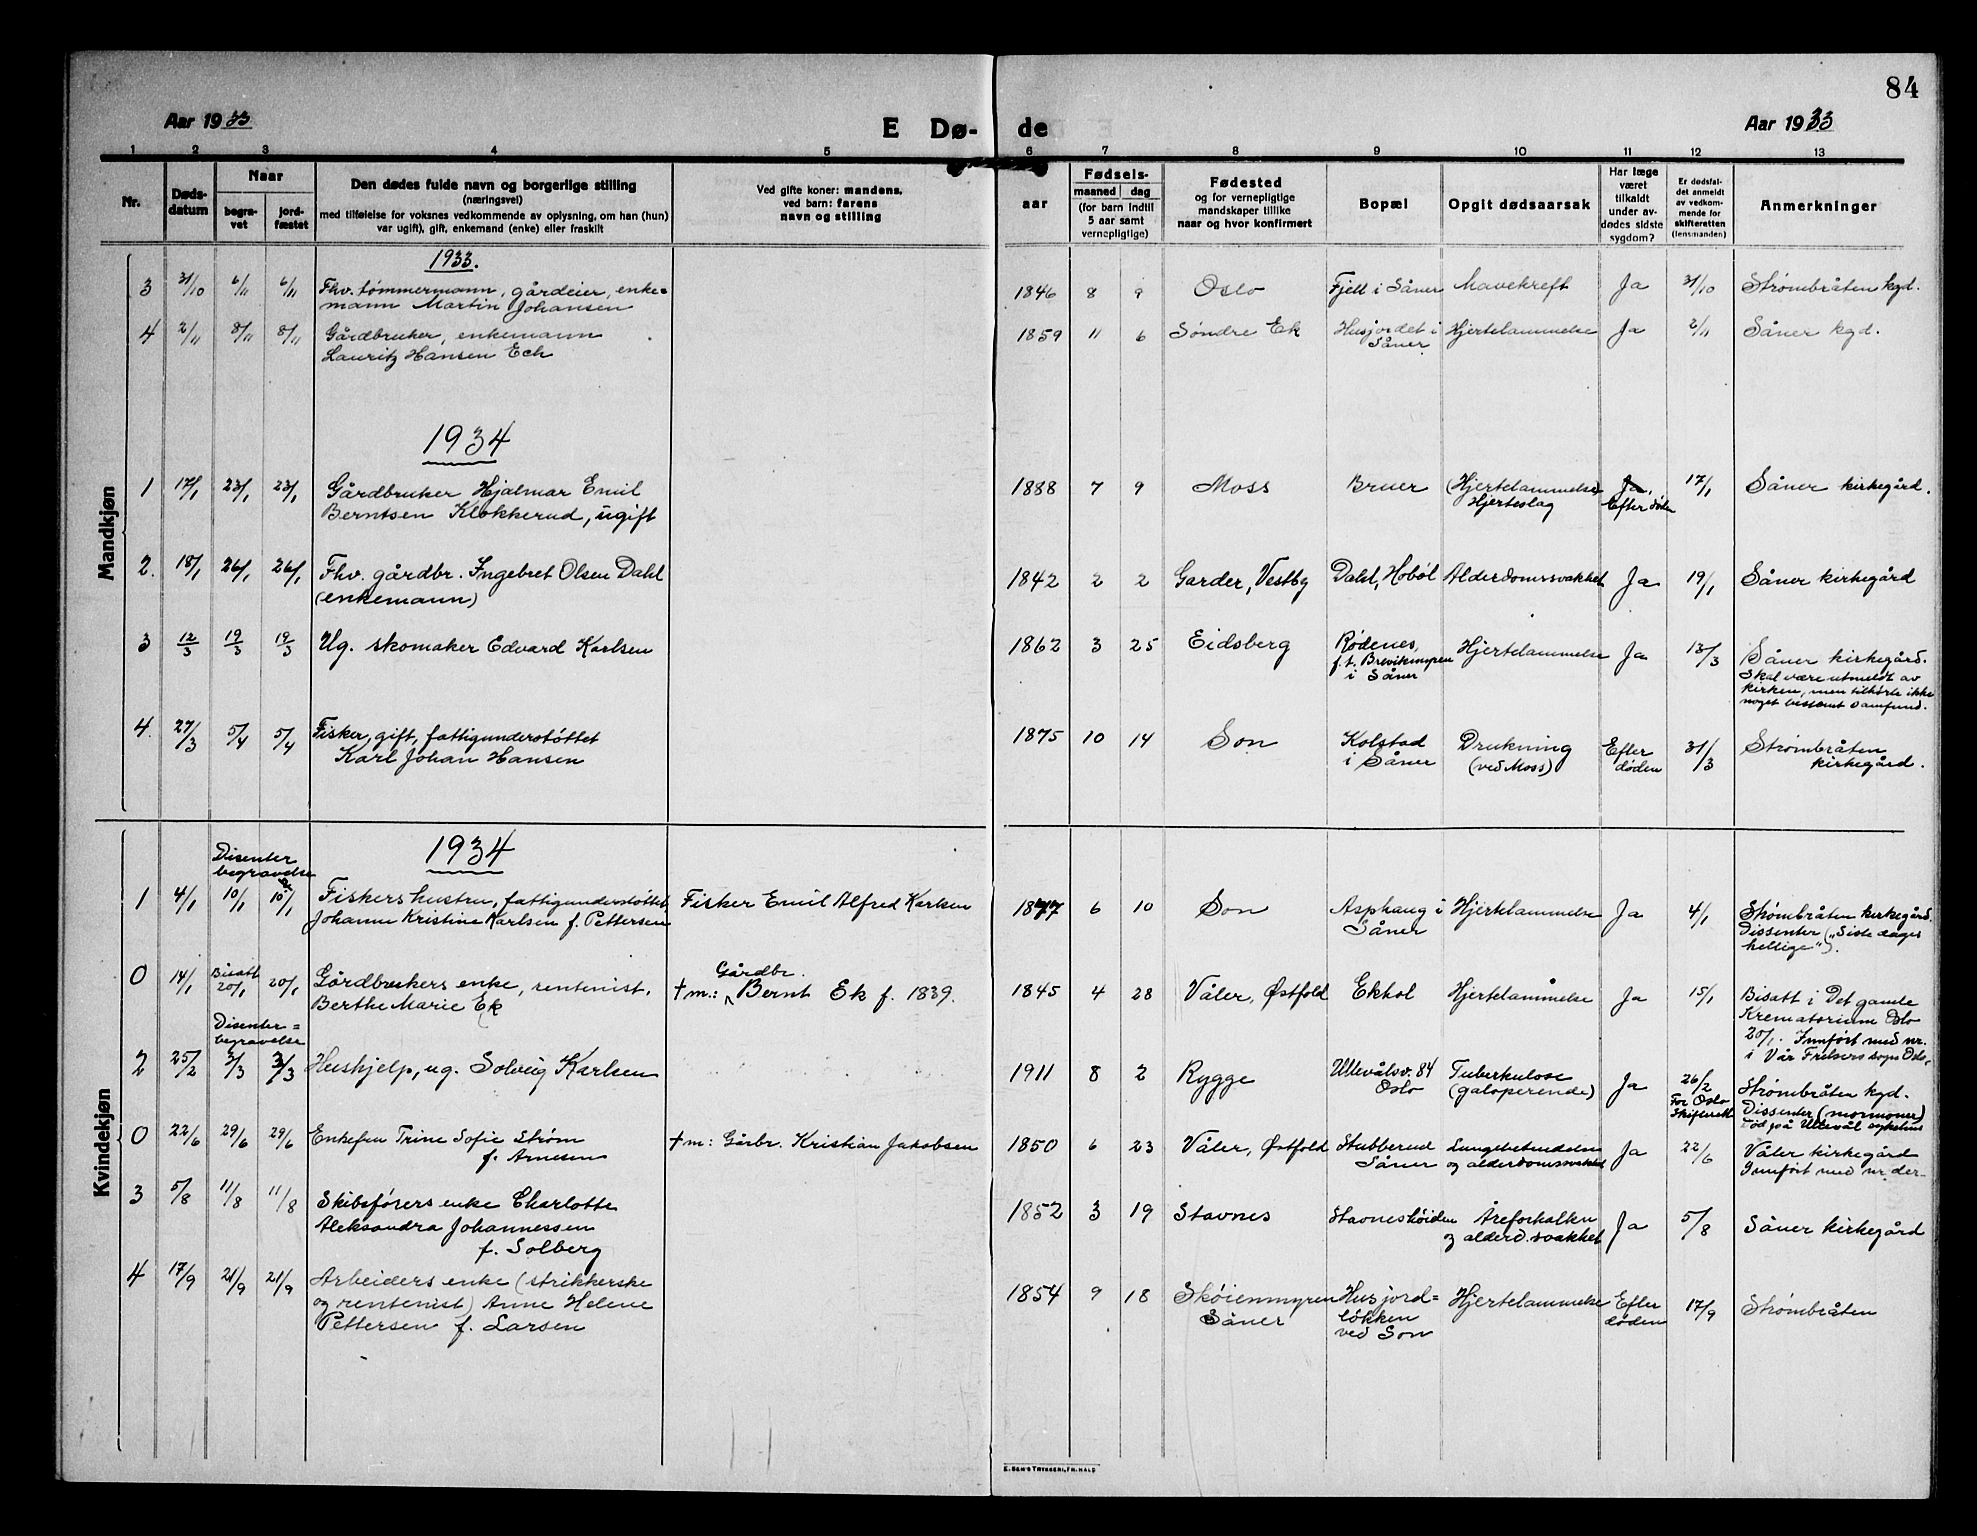 84
Aar 1933
E Dø-
de
Aar 1933
1 2 3 4 5 6 7 8 9 10 11 12 13
Nr.
Døds-
datum
Naar
begra-
vet
jord-
fæstet
Den dødes fulde navn og borgerlige stilling
(næringsvei)
med tilføielse for voksnes vedkommende av oplysning, om han (hun)
var ugift), gift, enkemand (enke) eller fraskilt
Ved gifte koner: mandens,
ved barn: farens
navn og stilling
aar
Fødsels-
maaned dag
(for barn indtil
5 aar samt
vernepligtige)
Fødested
og for vernepligtige
mandskaper tillike
naar og hvor konfirmert
Bopæl
Opgit dødsaarsak
Har læge
været
tilkaldt
under av-
dødes sidste
sygdom?
Er dødsfal-
det anmeldt
av vedkom-
mende for
skifteretten
(lensmanden)
Anmerkninger
Mandkjøn
1933.
3 31/10 6/11 6/11 Fhv. tømmermann, gårdeier, enke=
mann Martin Johansen
1846 8 9 Oslo Fjell i Såner Mavekreft Ja 31/10 Strømbråten kgd.
4 2/11 8/11 8/11 Gårdbruker, enkemann
Lauritz Hansen Ech
1859 11 6 Søndre Ek Husjordet i
Såner
Hjertelammelse Ja 2/11 Såner kgd.
1934
1 17/1 23/1 23/1 Gårdbruker Hjalmar Emil
Berntsen Klokkerud, ugift
1888 7 9 Moss Bruer (Hjertelammelse)
Hjerteslag
Ja,
Efter døden
17/1 Såner kirkegård.
2. 18/1 26/1 26/1 Fhv. gårdbr. Ingebret Olsen Dahl
(enkemann)
1842 2 2 Garder, Vestby Dahl, Hobøl Alderdomssvakhet Ja 19/1 Såner kirkegård
3 12/3 19/3 19/3 Ug. skomaker Edvard Karlsen
1862 3 25 Eidsberg Rødenes,
f.t. Brevikmyren
i Såner
Hjertelammelse Ja 13/3 Såner kirkegård.
Skal være utmeldt av
kirken, men tilhørte ikke
noget bestemt samfund.
4. 27/3 5/4 5/4 Fisker, gift, fattigunderstøttet
Karl Johan Hansen
1875 10 14 Son Kolstad
i Såner
Drukning
(ved Moss)
Efter
døden
31/3 Strømbråten
kirkegård.
Kvindekjøn
1934
Disenter
begravelse
1 4/1 10/1 10/1 Fiskers hustru, fattigunderstøttet
Johanne Kristine Karlsen f. Pettersen
Fisker Emil Alfred Karlsen
1877 6 10 Son Asphaug i
Såner
Hjertelammelse Ja 4/1 Strømbråten kirkegård.
Dissenter („Siste dages
hellige").
0 14/1 Bisatt
20/1 20/1 Gårdbrukers enke, rentenist,
Berthe Marie Ek
Gårdbr.
† m.: Bernt Ek f. 1839.
1845 4 28 Våler, Østfold Ekhol Hjertelammelse Ja 15/1 Bisatt i Det gamle
Krematorium Oslo
20/1. Innført med nr.
i Vår Frelsers sogn Oslo
Disenter=
begravelse
2 25/2 3/3 3/3 Hushjelp, ug. Solveig Karlsen
1911 8 2 Rygge Ullevålsv. 84
Oslo
Tuberkulose
(galoperende)
Ja 26/2
For Oslo
Skifterett
Strømbråten kgd.
Dissenter (mormoner)
Død på Ullevål sykehus
0 22/6 29/6 29/6 Enkefru Trine Sofie Strøm
f. Arnesen
† m: Gårbr. Kristian Jakobsen
1850 6 23 Våler, Østfold Stubberud
Såner
Lungebetendelse
og alderdomssvakhet
Ja 22/6 Våler kirkegård
Innført med nr. der-
3 5/8 11/8 11/8 Skibsførers enke Charlotte
Aleksandra Johannessen
f. Solberg
1852 3 19 Stavnes Stavneshøiden Åreforkalkn
og alderd. svakhet
Ja 5/8 Såner kirkegård
4 17/9 21/9 21/9 Arbeiders enke (strikkerske
og rentenist) Anne Helene
Pettersen f. Larsen
1854 9 18 Skøienmyren
Såner
Husjord=
løkken
ved Son
Hjertelammelse Efter
døden
17/9 Strømbråten
E. SEM'S TRYKKERI, FR.HALD